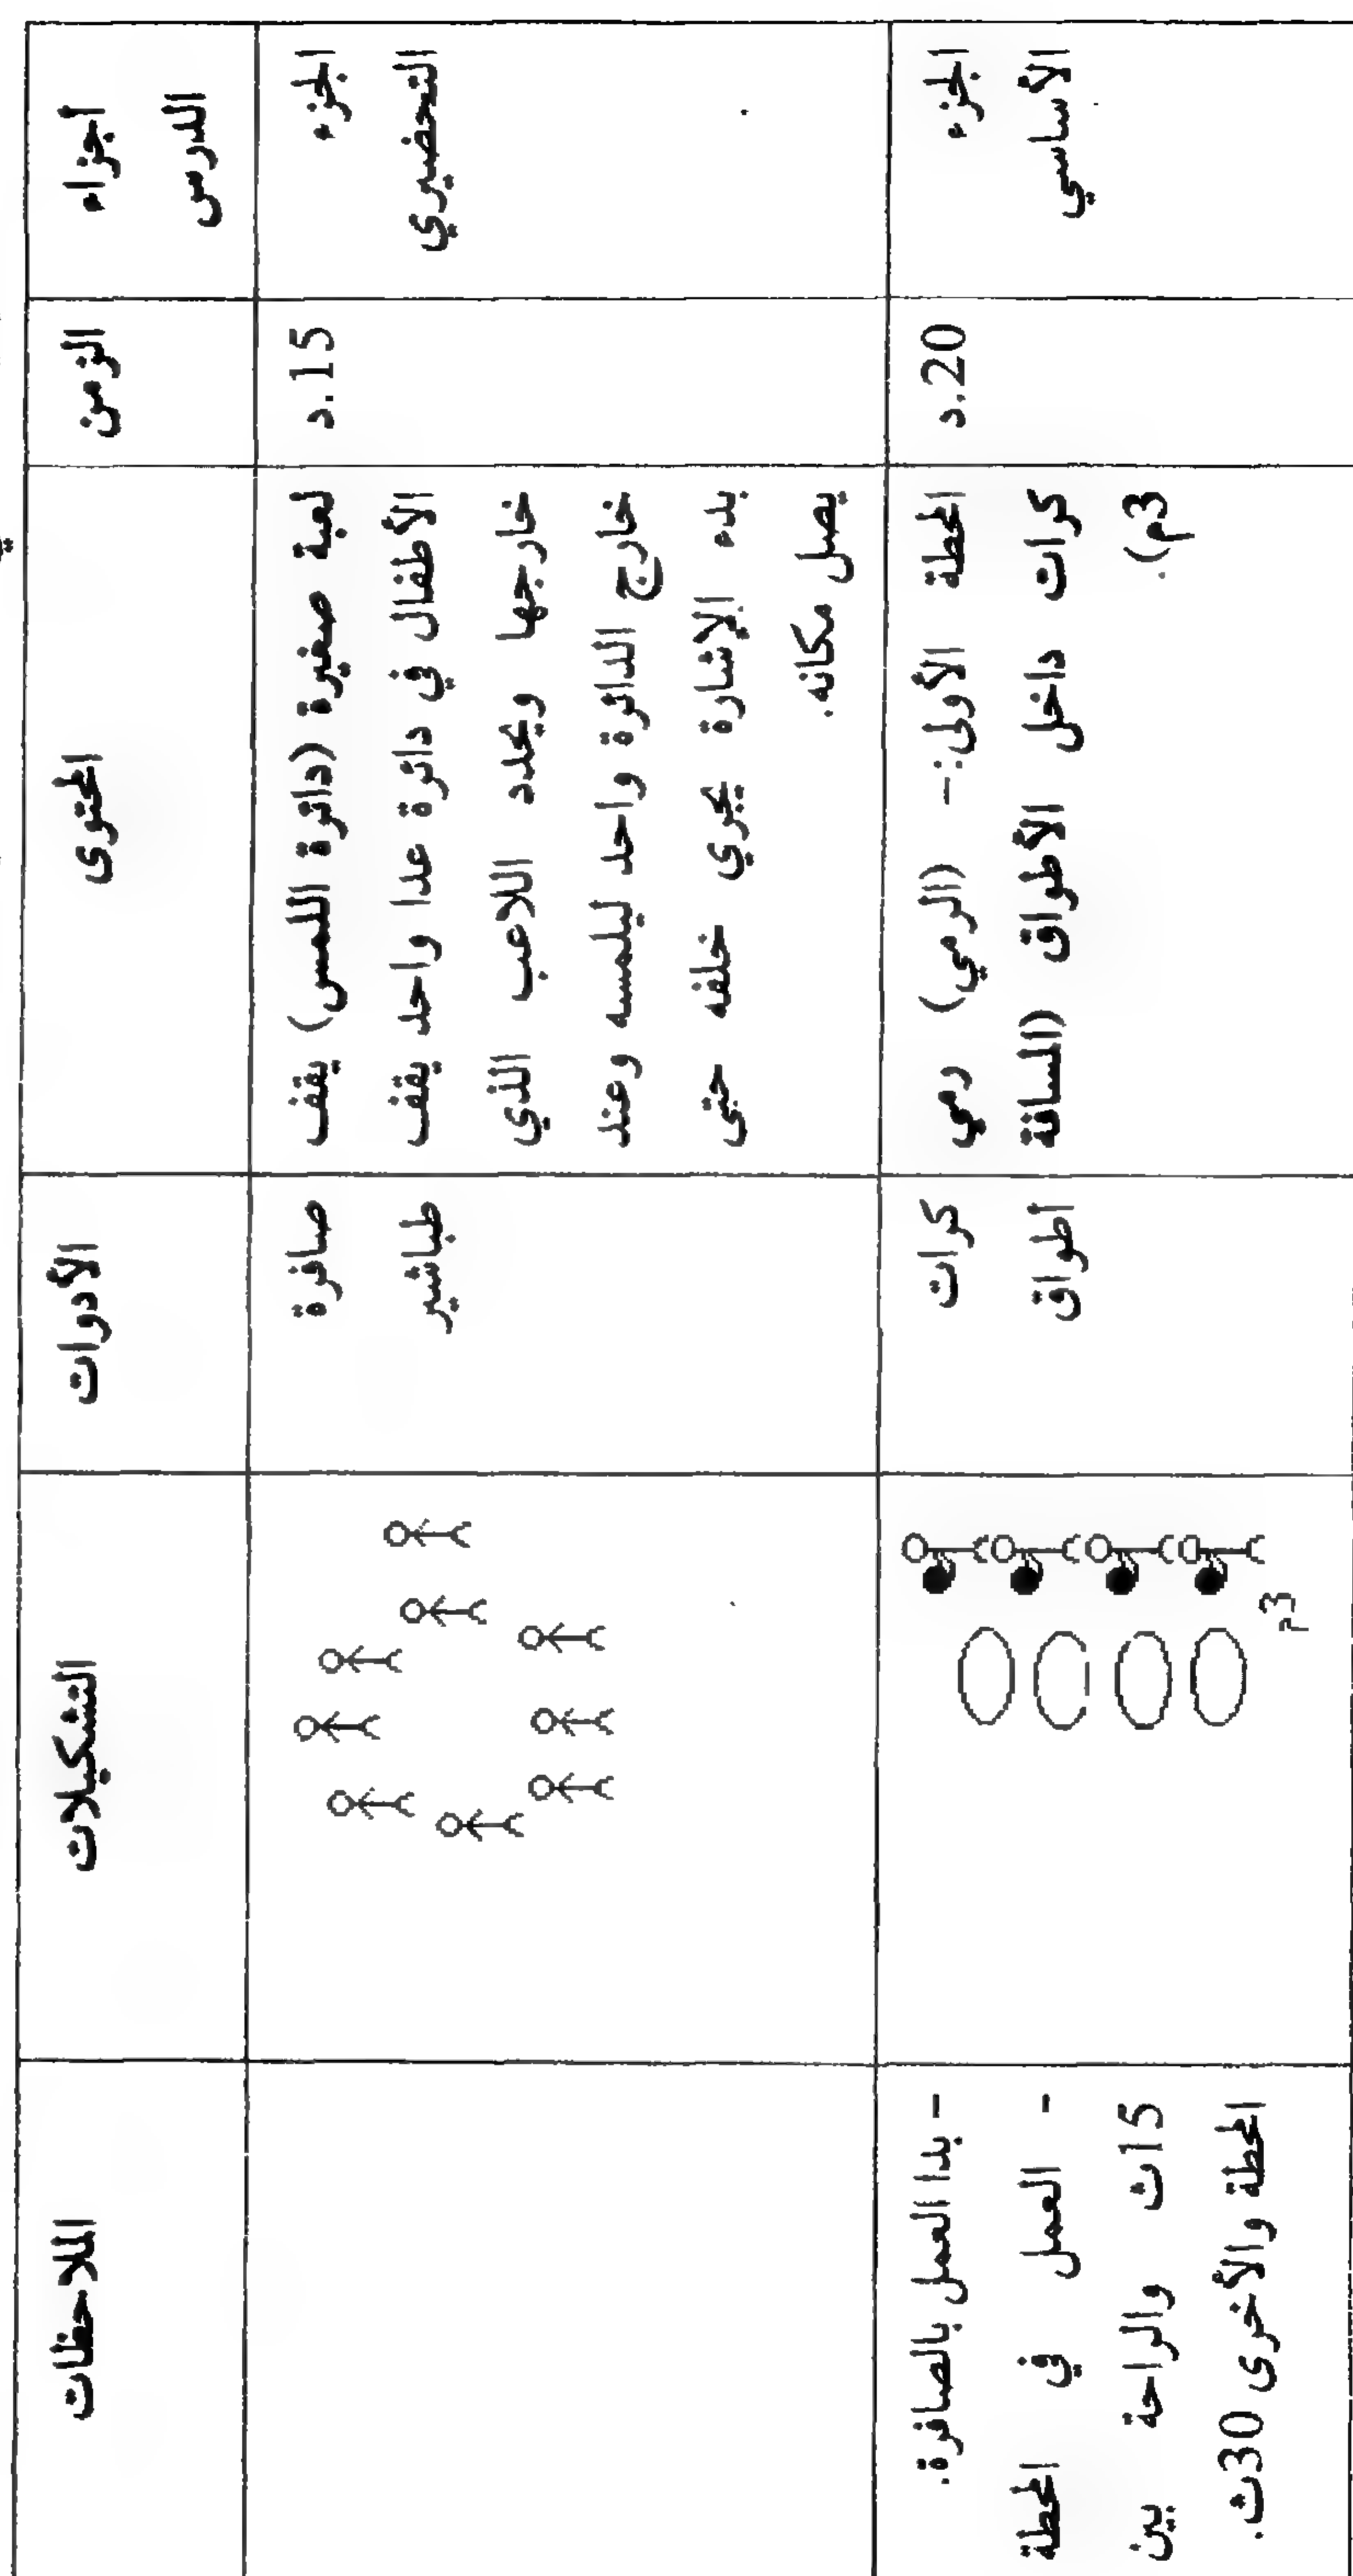 أجزاء
الدرس
الزمن
المحتوى
الأدوات
التشكيلات
الملاحظات
الجزء
التحضيري
15.د
لعبة صغيرة (دائرة اللمس) يقف
الأطفال في دائرة عدا واحد يقف
خارجها ويحدد اللاعب الذي
خارج الدائرة واحد ليلمسه وعند
بدء الإشارة يجري خلفه حتى
يصل مكانه.
صافرة
طباشير
الجزء
الأساسي
20.د
المحطة الأولى:- (الرمي) رمي
كرات داخل الأطواق (المسافة
3م).
كرات
أطواق
3م
- بدا العمل بالصافرة.
- العمل في المحطة
15ث والراحة بين
المحطة والأخرى 30ث.